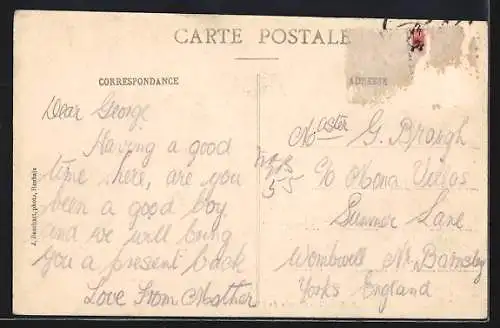 CARTE POSTALE
CORRESPONDANCE
ADRESSE
Dear George
Having a good
time here, are you
been a good boy
and we will bring
you a present back
Love From Mother
Master G. Brough
c/o Mona Villas
Summer Lane
Wombwell Nr Barnsley
Yorks England